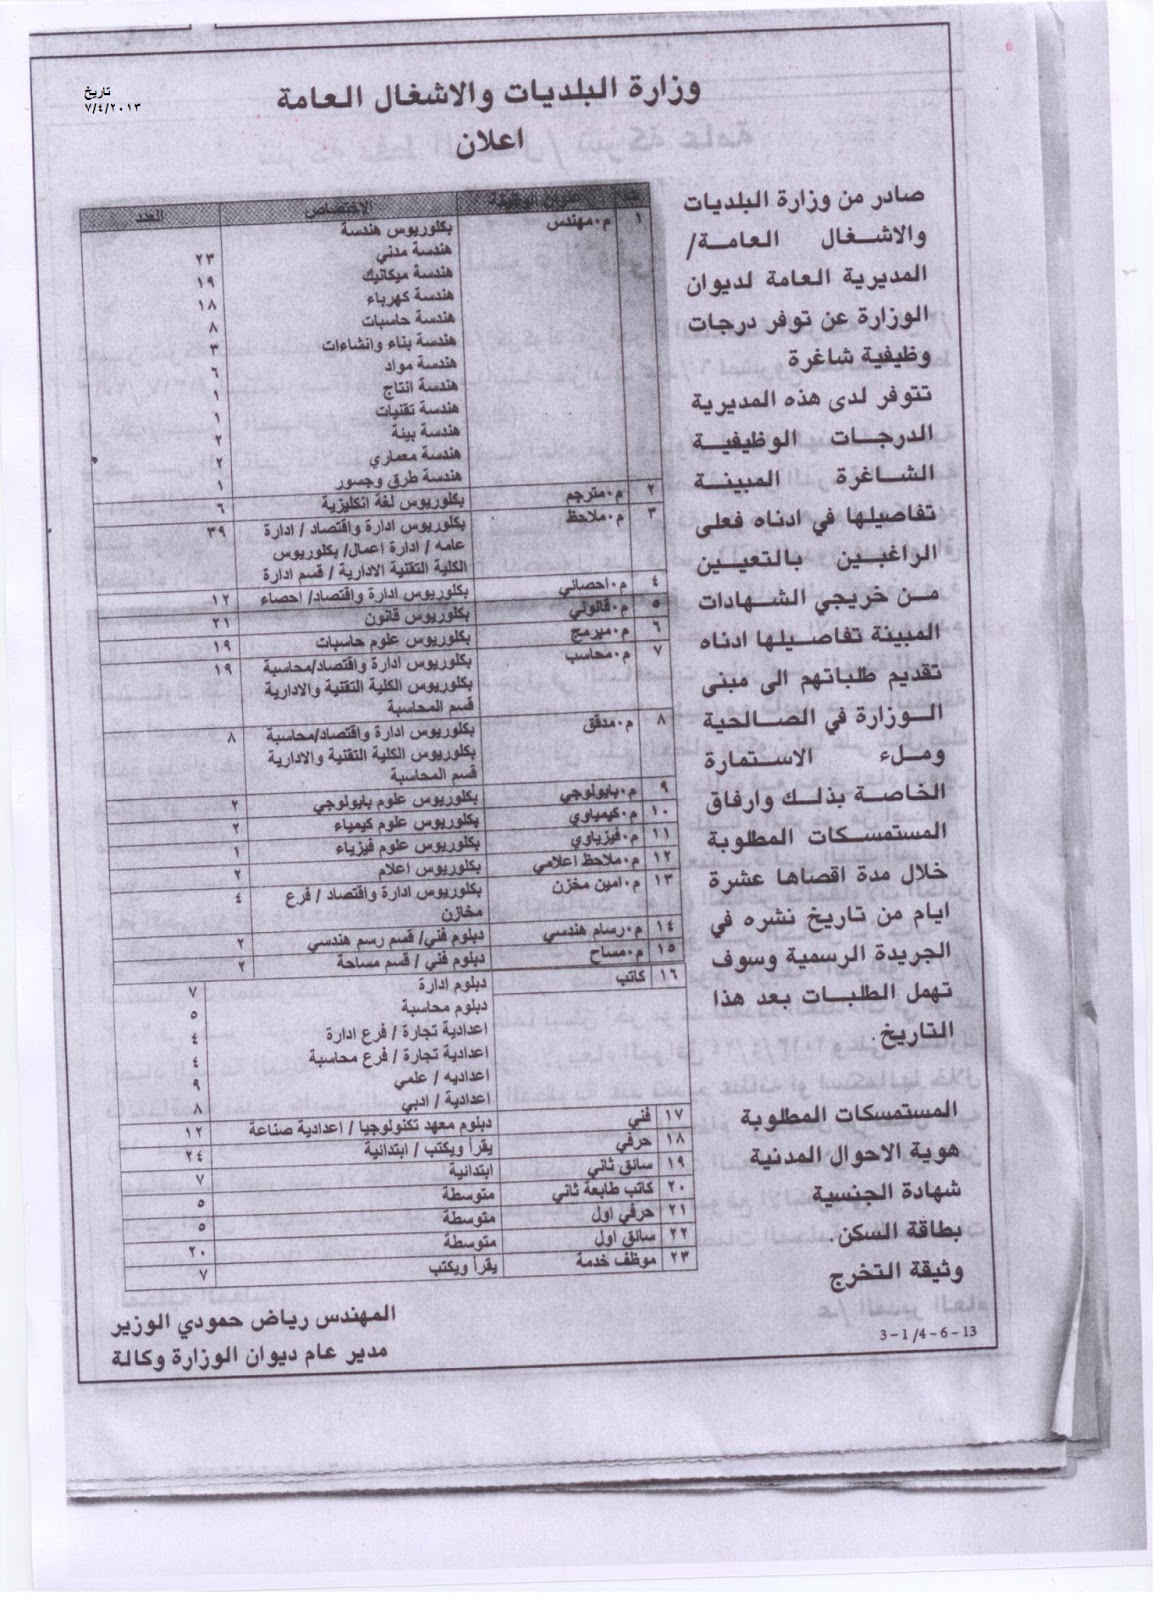 تاريخ
٧/٤/٢٠١٣
وزارة البلديات والاشغال العامة
اعلان
صادر من وزارة البلديات
والاشغال العامة/
المديرية العامة لديوان
الوزارة عن توفر درجات
وظيفية شاغرة
تتوفر لدى هذه المديرية
الدرجات الوظيفية
الشاغرة المبينة
تفاصيلها في ادناه فعلى
الراغبين بالتعيين
من خريجي الشهادات
المبينة تفاصيلها ادناه
تقديم طلباتهم الى مبنى
الوزارة في الصالحية
وملء الاستمارة
الخاصة بذلك وارفاق
المستمسكات المطلوبة
خلال مدة اقصاها عشرة
ايام من تاريخ نشره في
الجريدة الرسمية وسوف
تهمل الطلبات بعد هذا
التاريخ.
المستمسكات المطلوبة
هوية الاحوال المدنية
شهادة الجنسية
بطاقة السكن.
وثيقة التخرج
3 - 1 / 4 - 6 - 13
ت عنوان الوظيفة الاختصاص العدد
١ م.مهندس بكلوريوس هندسة
هندسة مدني ٢٣
هندسة ميكانيك ١٩
هندسة كهرباء ١٨
هندسة حاسبات ٨
هندسة بناء وانشاءات ٣
هندسة مواد ٦
هندسة انتاج ١
هندسة تقنيات ١
هندسة بيئة ٢
هندسة معماري ٢
هندسة طرق وجسور ١
٢ م.مترجم بكلوريوس لغة انكليزية ٦
٣ م.ملاحظ بكلوريوس ادارة واقتصاد / ادارة ٣٩
عامه / ادارة اعمال/ بكلوريوس
الكلية التقنية الادارية / قسم ادارة
٤ م.احصائي بكلوريوس ادارة واقتصاد/ احصاء ١٢
٥ م.قانوني بكلوريوس قانون ٢١
٦ م.مبرمج بكلوريوس علوم حاسبات ١٩
٧ م.محاسب بكلوريوس ادارة واقتصاد/محاسبة ١٩
بكلوريوس الكلية التقنية والادارية
قسم المحاسبة
٨ م.مدقق بكلوريوس ادارة واقتصاد/محاسبة ٨
بكلوريوس الكلية التقنية والادارية
قسم المحاسبة
٩ م.بايولوجي بكلوريوس علوم بايولوجي ٢
١٠ م.كيمياوي بكلوريوس علوم كيمياء ٢
١١ م.فيزياوي بكلوريوس علوم فيزياء ١
١٢ م.ملاحظ اعلامي بكلوريوس اعلام ٢
١٣ م.امين مخزن بكلوريوس ادارة واقتصاد / فرع ٤
مخازن
١٤ م.رسام هندسي دبلوم فني/ قسم رسم هندسي ٢
١٥ م.مساح دبلوم فني / قسم مساحة ٢
١٦ كاتب دبلوم ادارة ٧
دبلوم محاسبة ٥
اعدادية تجارة / فرع ادارة ٤
اعدادية تجارة / فرع محاسبة ٤
اعداديه / علمي ٩
اعدادية / ادبي ٨
١٧ فني دبلوم معهد تكنولوجيا / اعدادية صناعة ١٢
١٨ حرفي يقرأ ويكتب / ابتدائية ٢٤
١٩ سائق ثاني ابتدائية ٧
٢٠ كاتب طابعة ثاني متوسطة ٥
٢١ حرفي اول متوسطة ٥
٢٢ سائق اول متوسطة ٢٠
٢٣ موظف خدمة يقرأ ويكتب ٧
المهندس رياض حمودي الوزير
مدير عام ديوان الوزارة وكالة